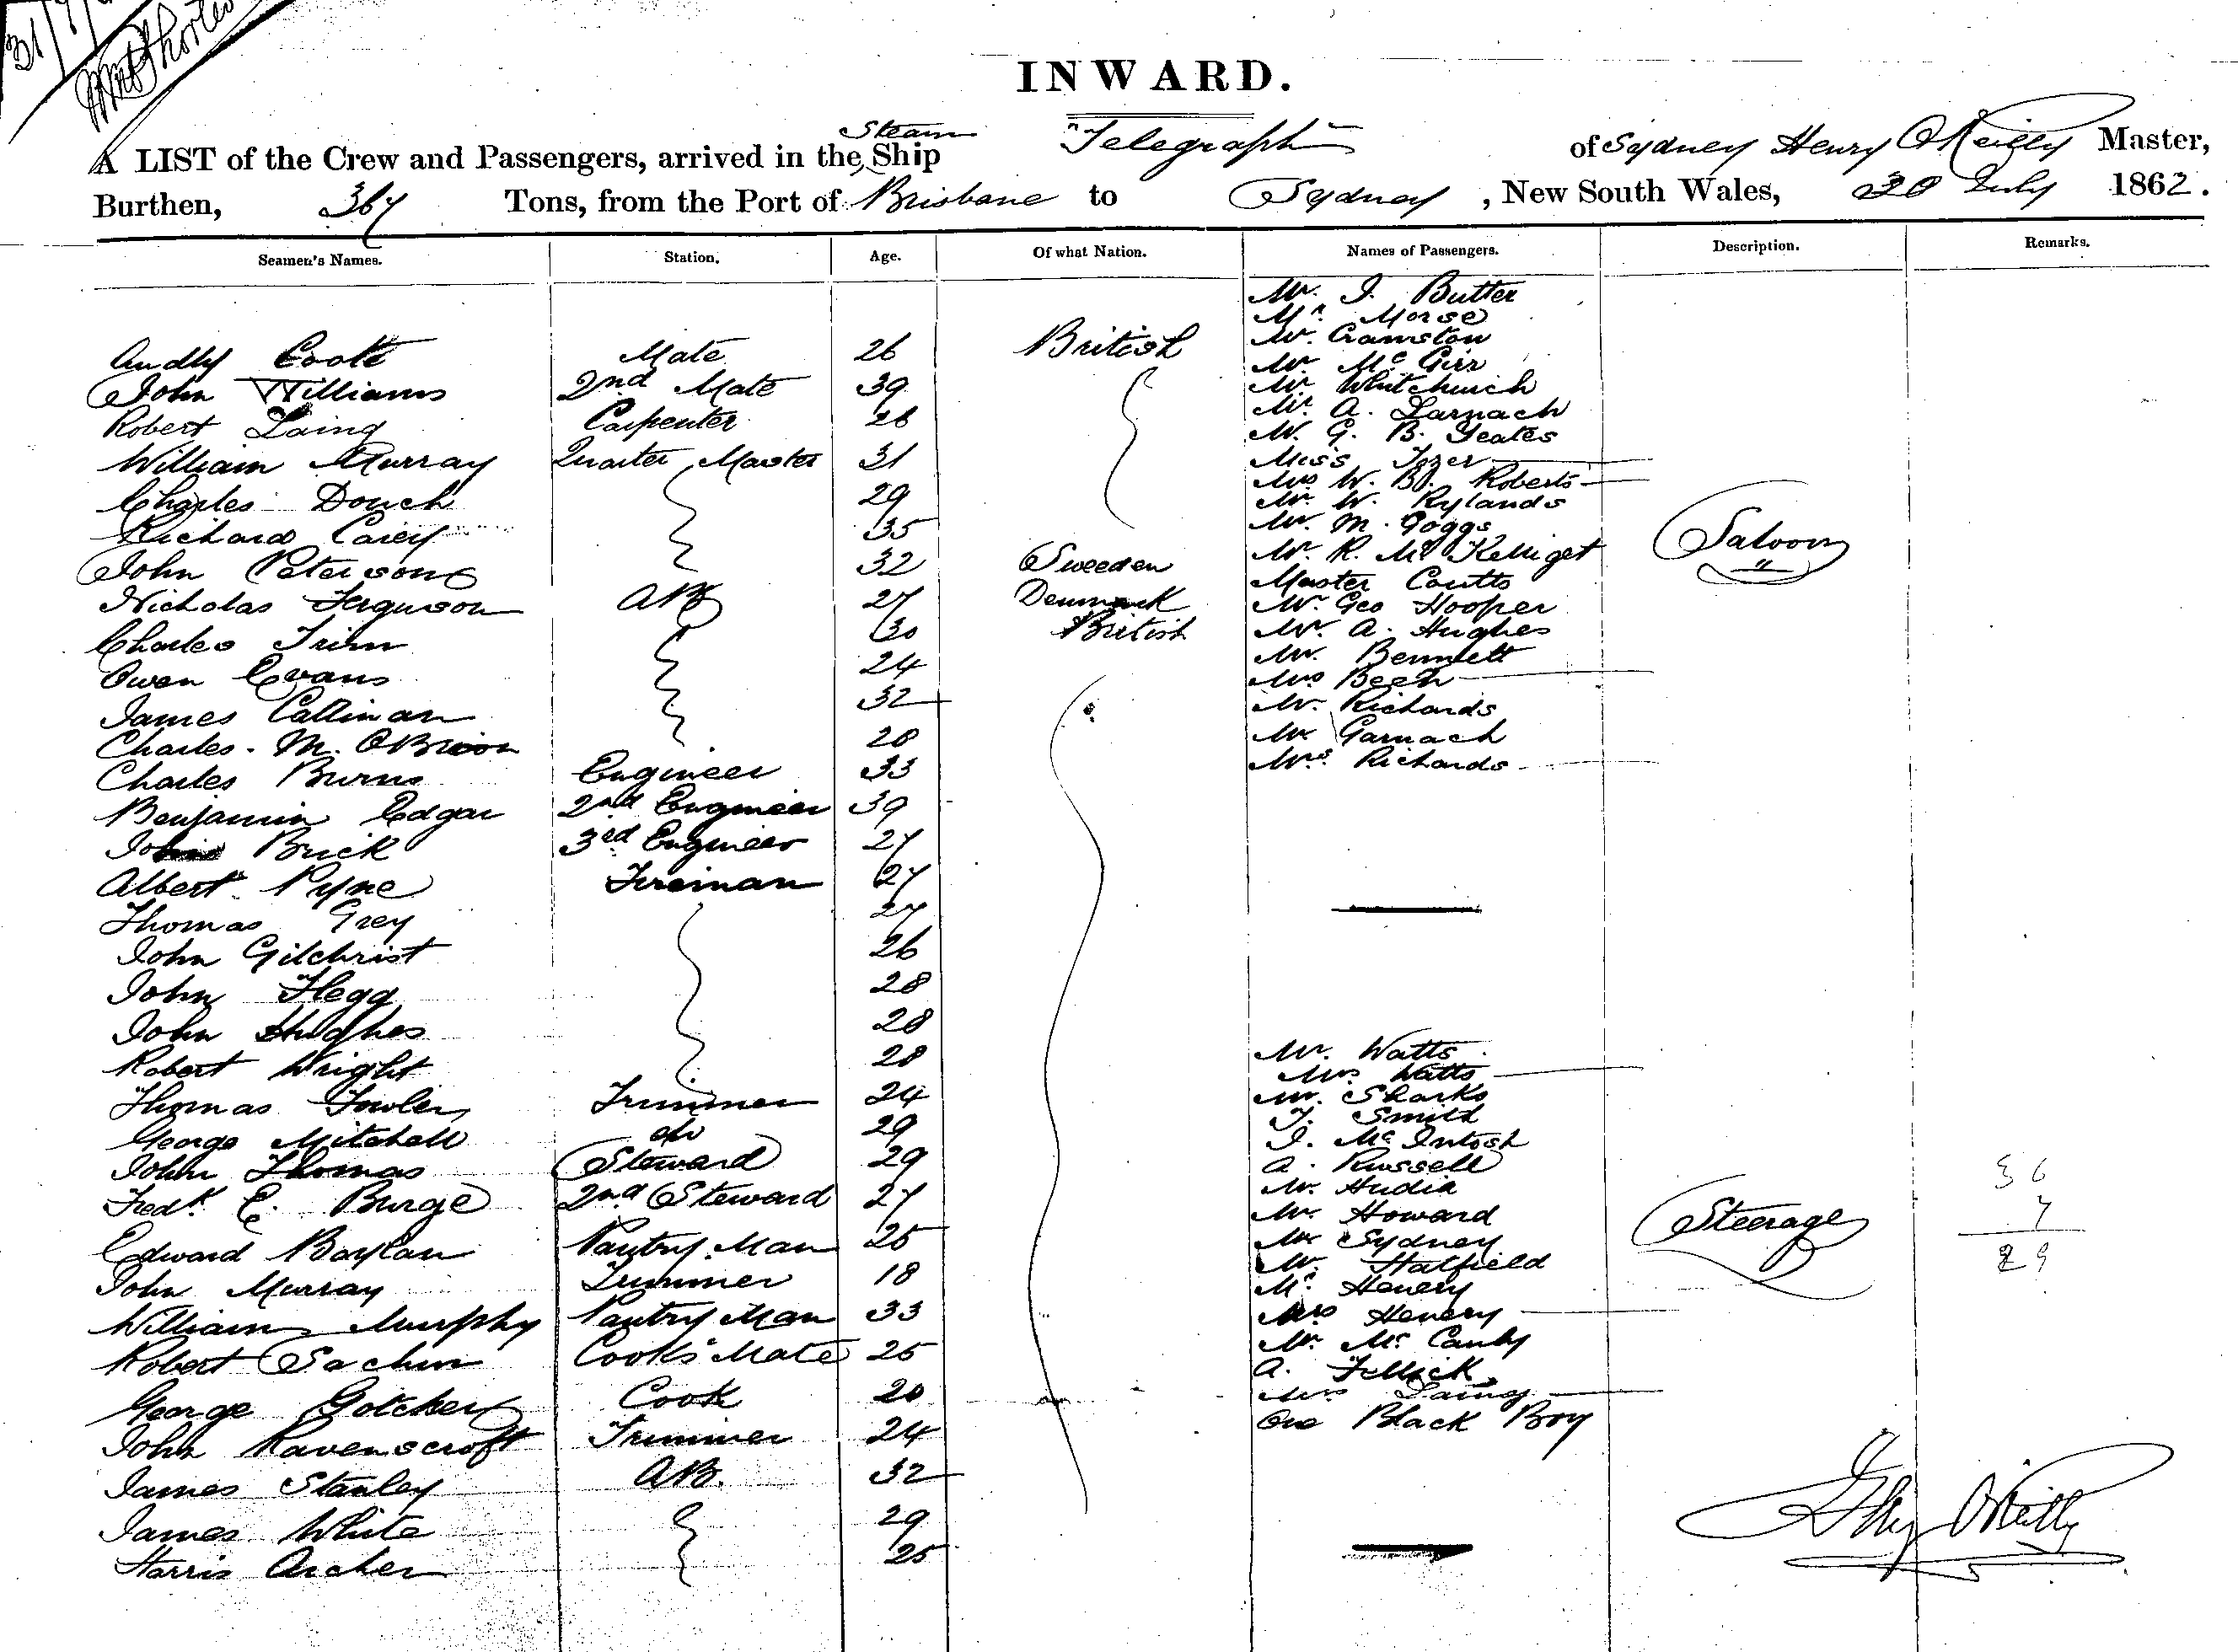 31/7/
INWARD.
A LIST of the Crew and Passengers, arrived in the Steam Ship "Telegraph" of Sydney Henry O'Reilly Master,
Burthen, 367 Tons, from the Port of Brisbane to Sydney, New South Wales, 30 July 1862.
Seamen's Names. Station. Age. Of what Nation. Names of Passengers. Description. Remarks.
Audly Coote Mate 26 British
John Williams 2nd Mate 39
Robert Laing Carpenter 26
William Murray Quarter Master 31
Charles Douch 29
Richard Carey 35
John Peterson 32 Sweeden
Nicholas Ferguson AB 27 Denmark
Charles Trim 30 British
Owen Evans 24
James Calliman 32
Charles. M. OBrion 28
Charles Burns Engineer 33
Benjamin Edgar 2nd Engineer 39
John Brick 3rd Engineer 27
Albert Pyne Fireman 27
Thomas Grey 27
John Gilchrist 26
John Flegg 28
John Hughes 28
Robert Wright 28
Thomas Fowler Trimmer 24
George Mitchell do 29
John Thomas Steward 29
Fredk. E. Burge 2nd Steward 27
Edward Baylan Pantry Man 25
John Murray Trimmer 18
William Murphy Pantry Man 33
Robert Sachin Cooks Mate 25
George Gotcher Cook 20
John Ravenscroft Trimmer 24
James Stanley AB. 32
James White 29
Harris Archer 25
Mr. J. Butter
Mr. Morse
Mr. Cramston
Mr. McGirr
Mr Whitchurch
Mr. A. Larnach
Mr. G. B. Yeates
Miss Tozer
Mrs W. B. Roberts
Mr. W. Rylands
Mr. M. Goggs
Mr. R. Mc Kelliget
Master Coutts
Mr. Geo Hooper
Mr. A. Hughes
Mr. Bennett
Mrs Beeh
Mr. Richards
Mr Garnach
Mrs Richards
Saloon
Mr. Watts
Mrs Watts
Mr. Sharks
T. Smith
J. McIntosh
A. Russell
Mr. Hudia
Mr. Howard
Mr Sydney
Mr. Hatfield
Mr. Henery
Mrs Henery
Mr. Mc Canly
A. Fellick
Mrs Laing
One Black Boy
Steerage
36
7
29
S Hy O'Reilly